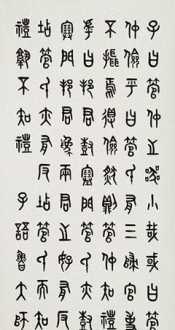 子曰管仲之器小哉或曰管
仲儉乎曰管氏有三歸官事
不攝焉得儉然則管仲知禮
乎曰邦君樹塞門管氏亦樹
塞門邦君為兩君之好有反
坫管氏亦有反坫管氏而知
禮孰不知禮 子語魯大師